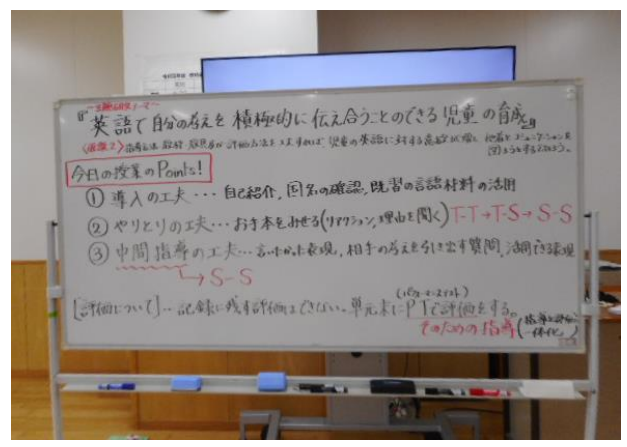 〜主題研究テーマ〜
『英語で自分の考えを積極的に伝え合うことのできる児童の育成』
〈仮説2〉指導方法、教材・教具及び評価方法を工夫すれば、児童の英語に対する意欲が増し、他者とコミュニケーションを
図ろうとするであろう。
今日の授業のPoint!
① 導入の工夫・・・自己紹介、国名の確認、既習の言語材料の活用
② やりとりの工夫・・・お手本をみせる(リアクション、理由を聞く) T-T→T-S→S-S
③ 中間指導の工夫…言いたかった表現、相手の考えを引き出す質問、活用できる表現
→S-S
(パフォーマンステスト)
[評価について]・・記録に残す評価はできない。単元末にPTで評価をする。
そのための指導(指導と評価の一体化)